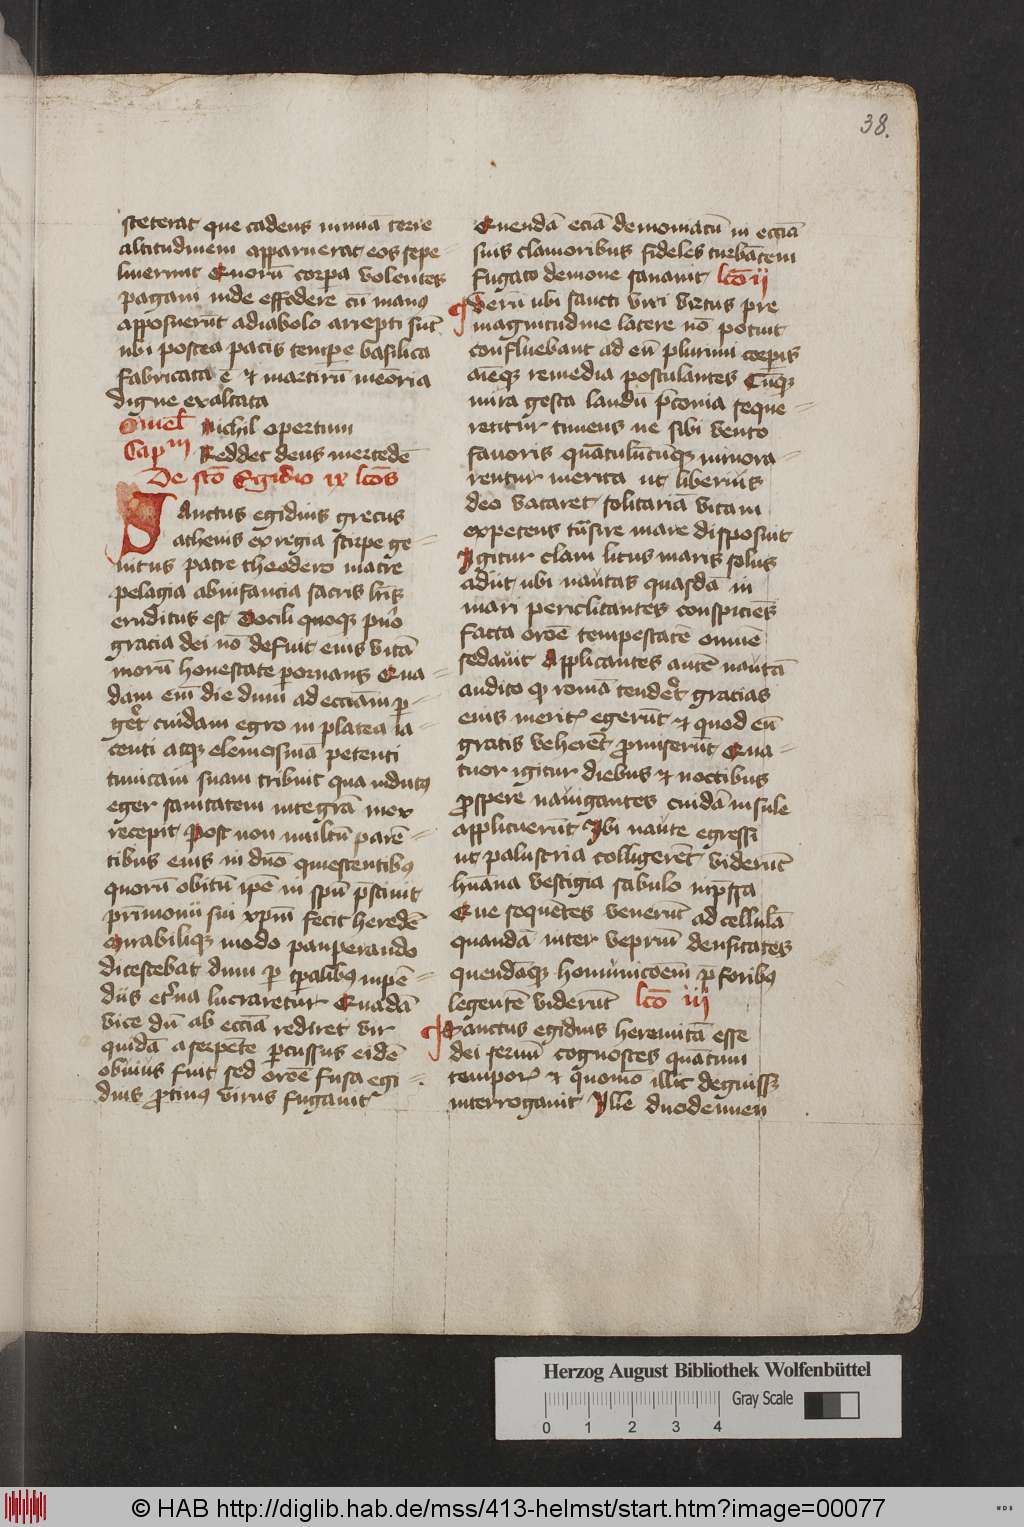 38.
steterat que cadens in unā terre
altitudinem apparuerat eos sepe
livernnt Quorū corpa volentes
pagani inde effodere cū manꝰ
apposuerūt a diabolo arrepti sūt
ubi postea pacis tempe basilica
fabricata ē et martirū meōria
digne exaltata
Nichil opertum
Capᵐ Reddet deus mercedē
De scō Egidio ix lcōs
Sanctus egidius grecus
athenis ex regia stirpe ge
nitus patre theodero matre
pelagia ab infancia sacris lrīs
eruditus est Docili quoqꝫ pūo
gracia dei nō defuit eius vitā
morū honestate perornans Qua
dam eīm die dum ad ecciam p
get cuidam egro in platea ia
centi atqꝫ elemosinā petenti
tunicam suam tribuit qua indutꝰ
eger sanitatem integrā mox
recepit Post non multū parē
tibus eius in dnō quiescentibꝰ
quorū obitū ipē in spū pscivit
prīmonii sui xpm̄ fecit heredē
Mirabiliqꝫ modo pauperando
ditescebat dum p tpalibꝰ inpē
diis etna lucraretur Quadā
vice dū ab ecciā rediret vir
quidā a serpēte pcussus eidē
obvius fuit sed orōe fusa egi
dius ptinꝰ virus fugavit
Quendā eciā demoniacū in ecciā
suis clamoribus fideles turbātem
fugato demone sanavit lcō ii
Verū ubi sancti viri virtus pre
magnitudine latere nō potuit
confluebant ad eū plurimi corpis
aīeqꝫ remedia postulantes Cūqꝫ
mira gesta laudū pconia seque
retitur timens ne sibi vento
favoris quātulūcūqꝫ minora
rentur merita ut liberius
deo vacaret solitariā vitam
expetens tnsire mare disposuit
Igitur clam litus maris solus
adiit ubi nautas quasdā in
mari periclitantes conspiciēs
facta orōe tempestatē omnē
sedavit Applicantes autē nautā
audito qꝫ romā tendet gracias
eius merit egerūt et quod eū
gratis veherēt pmiserūt Qua
tuor igitur diebus et noctibus
pspere navigantes cuidā insule
applicuerūt Ibi naute egressi
ut palustria colligerēt viderūt
hūana vestigia sabulo inpssa
Que sequētes venerūt ad cellulā
quandā inter vepriū densitates
quendāqꝫ homūnicōem p foribꝰ
legentē viderūt lcō iii
Sanctus egidius heremitā esse
dei servū cognoscēs quātum
tempor et quomō illic deguissꝫ
interrogavit Ille duodennen
Herzog August Bibliothek Wolfenbüttel
Gray Scale
0 1 2 3 4
© HAB http://diglib.hab.de/mss/413-helmst/start.htm?image=00077